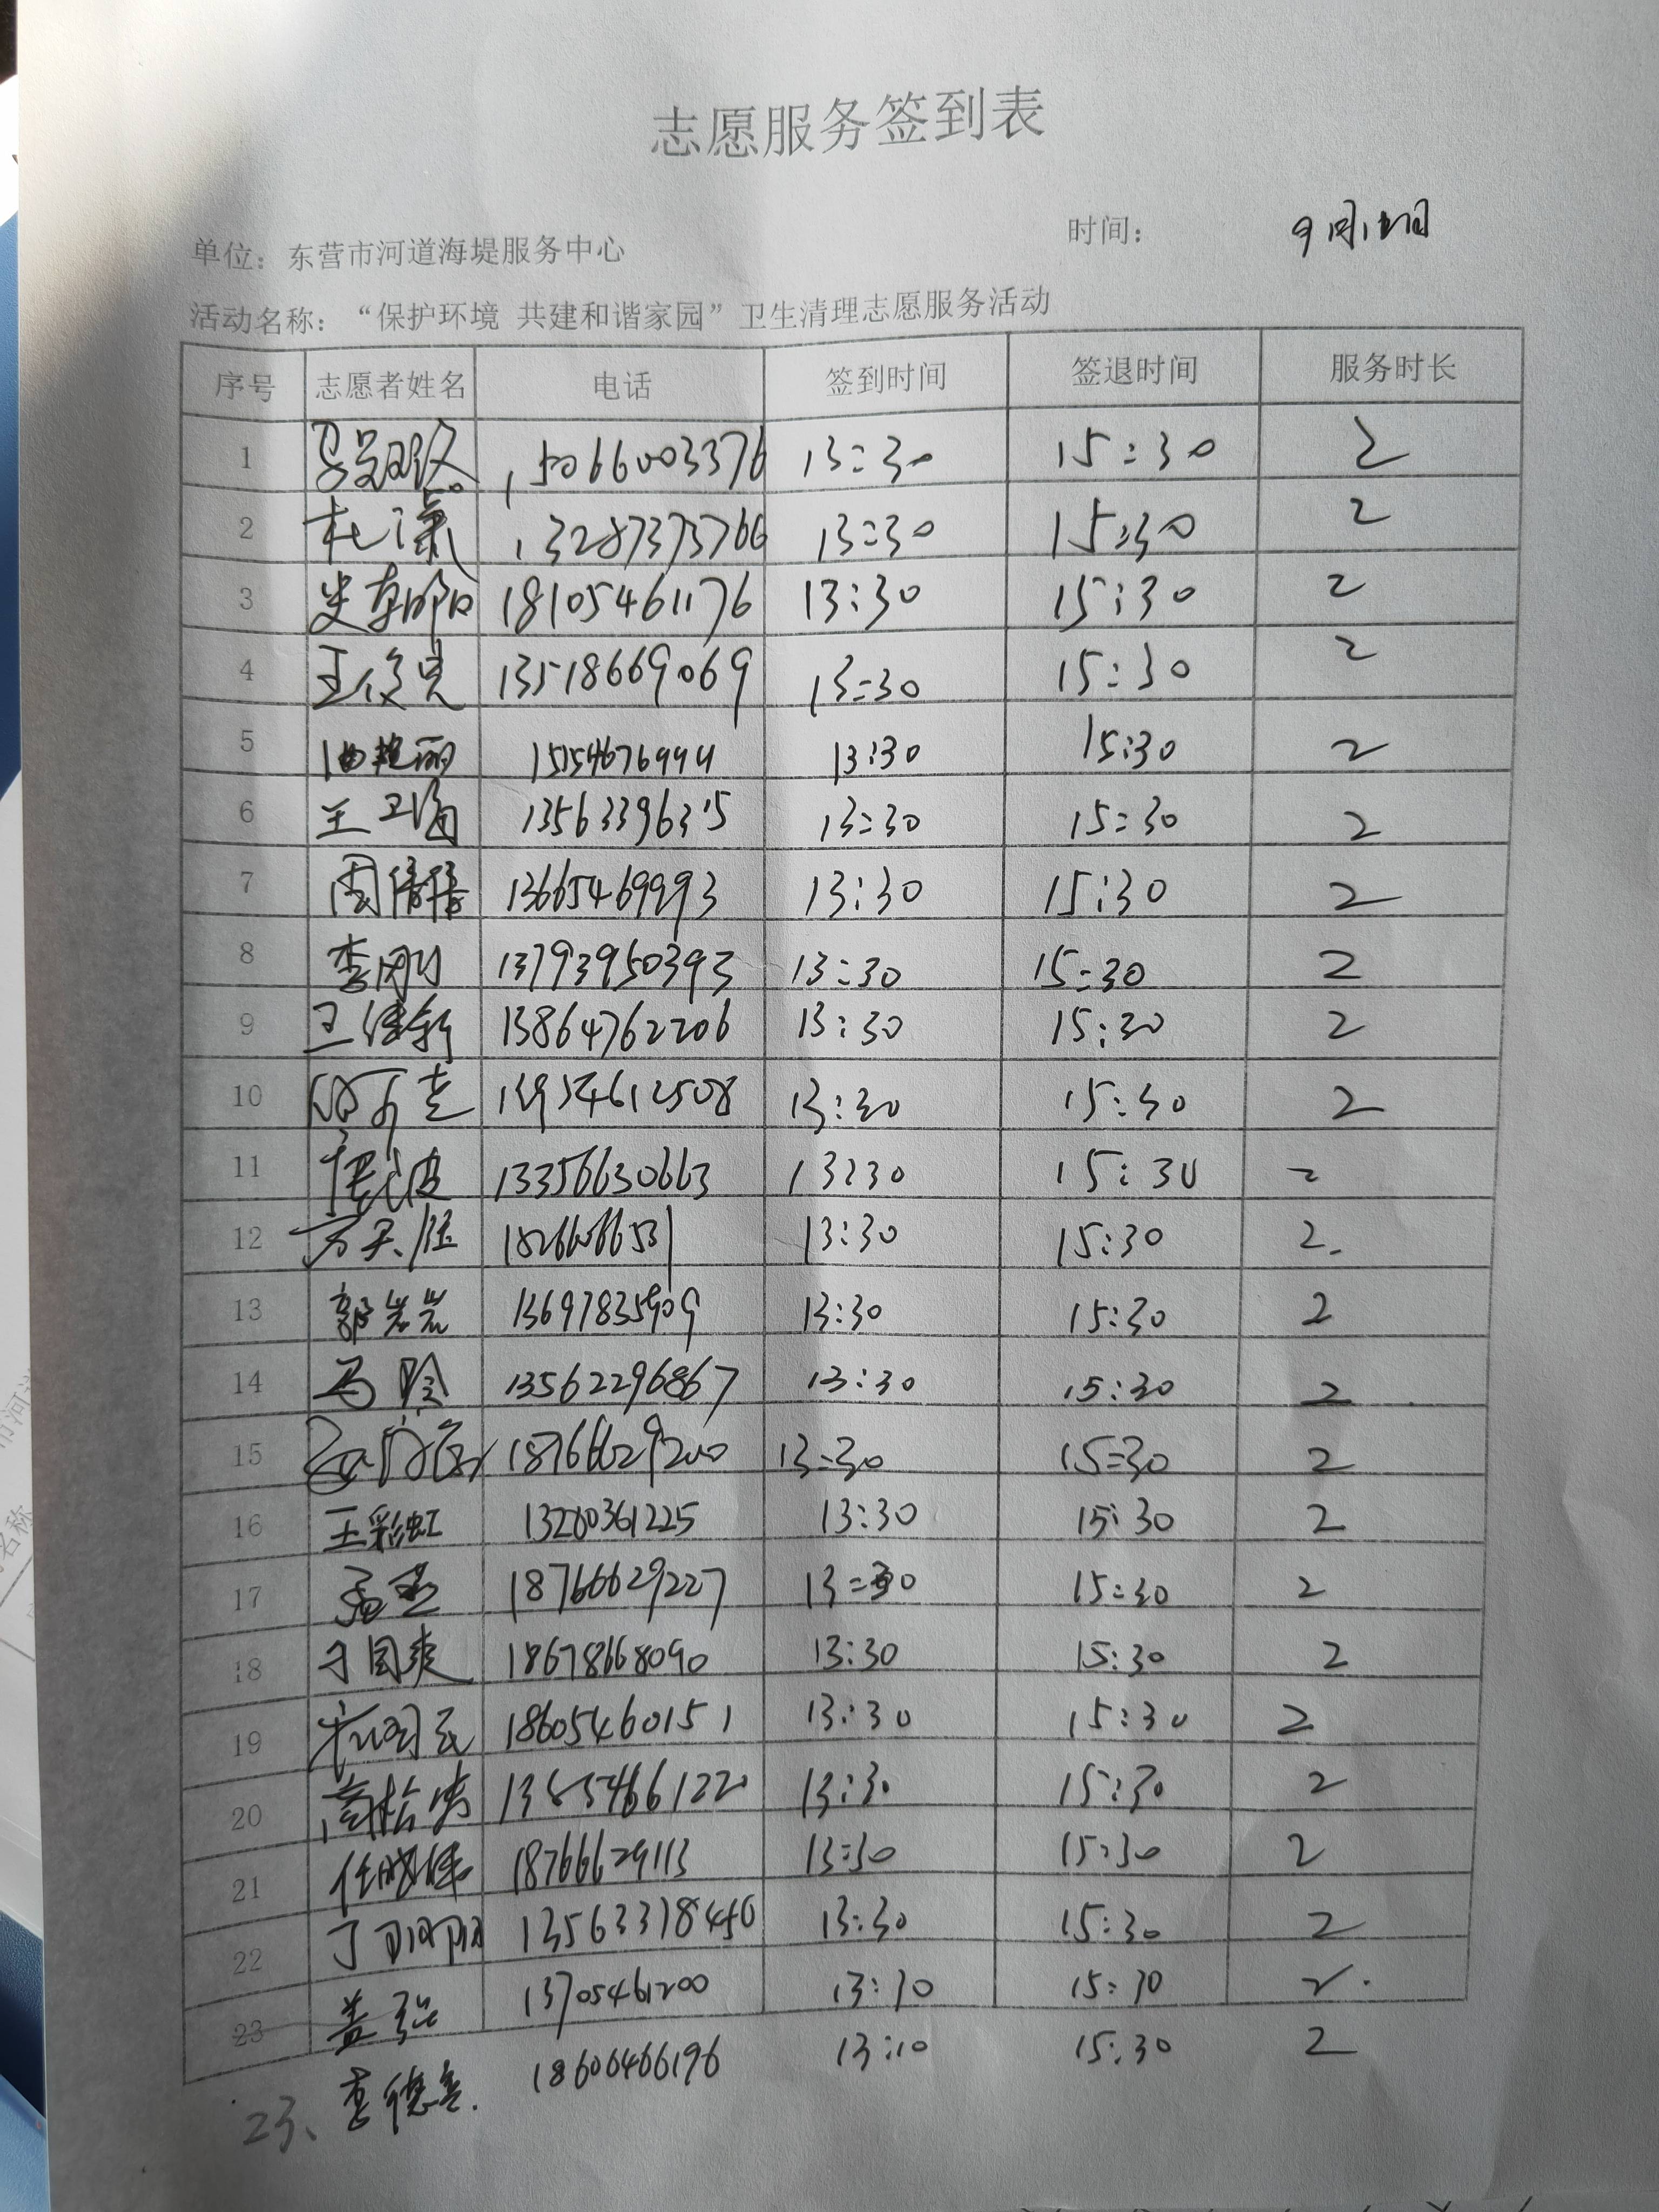 志愿服务签到表
单位：东营市河道海堤服务中心 时间： 9月
活动名称：“保护环境 共建和谐家园”卫生清理志愿服务活动
序号 志愿者姓名 电话 签到时间 签退时间 服务时长
1 15066003376 13:30 15:30 2
2 杜潇 13287375766 13:30 15:30 2
3 史朝阳 18105461176 13:30 15:30 2
4 王俊昊 13518669069 13:30 15:30 2
5 由艳丽 15154676994 13:30 15:30 2
6 王卫涵 13563396315 13:30 15:30 2
7 周倩倩 13665469993 13:30 15:30 2
8 李刚 13793950393 13:30 15:30 2
9 王继新 13864762206 13:30 15:30 2
10 13954612508 13:30 15:30 2
11 13356630663 13:30 15:30 2
12 13:30 15:30 2.
13 郭岩岩 13697835909 13:30 15:30 2
14 马 13562296867 13:30 15:30 2
15 18766629200 13:30 15:30 2
16 王彩虹 13280361225 13:30 15:30 2
17 孟 18766629227 13:30 15:30 2
18 于国爽 18678668090 13:30 15:30 2
19 18605460151 13:30 15:30 2
20 商松涛 13:30 15:30 2
21 任晓伟 18766629113 13:30 15:30 2
22 丁珊珊 13563318450 13:30 15:30 2
23 盖 13705461200 13:30 15:30 2.
23、李德 18606466196 13:10 15:30 2